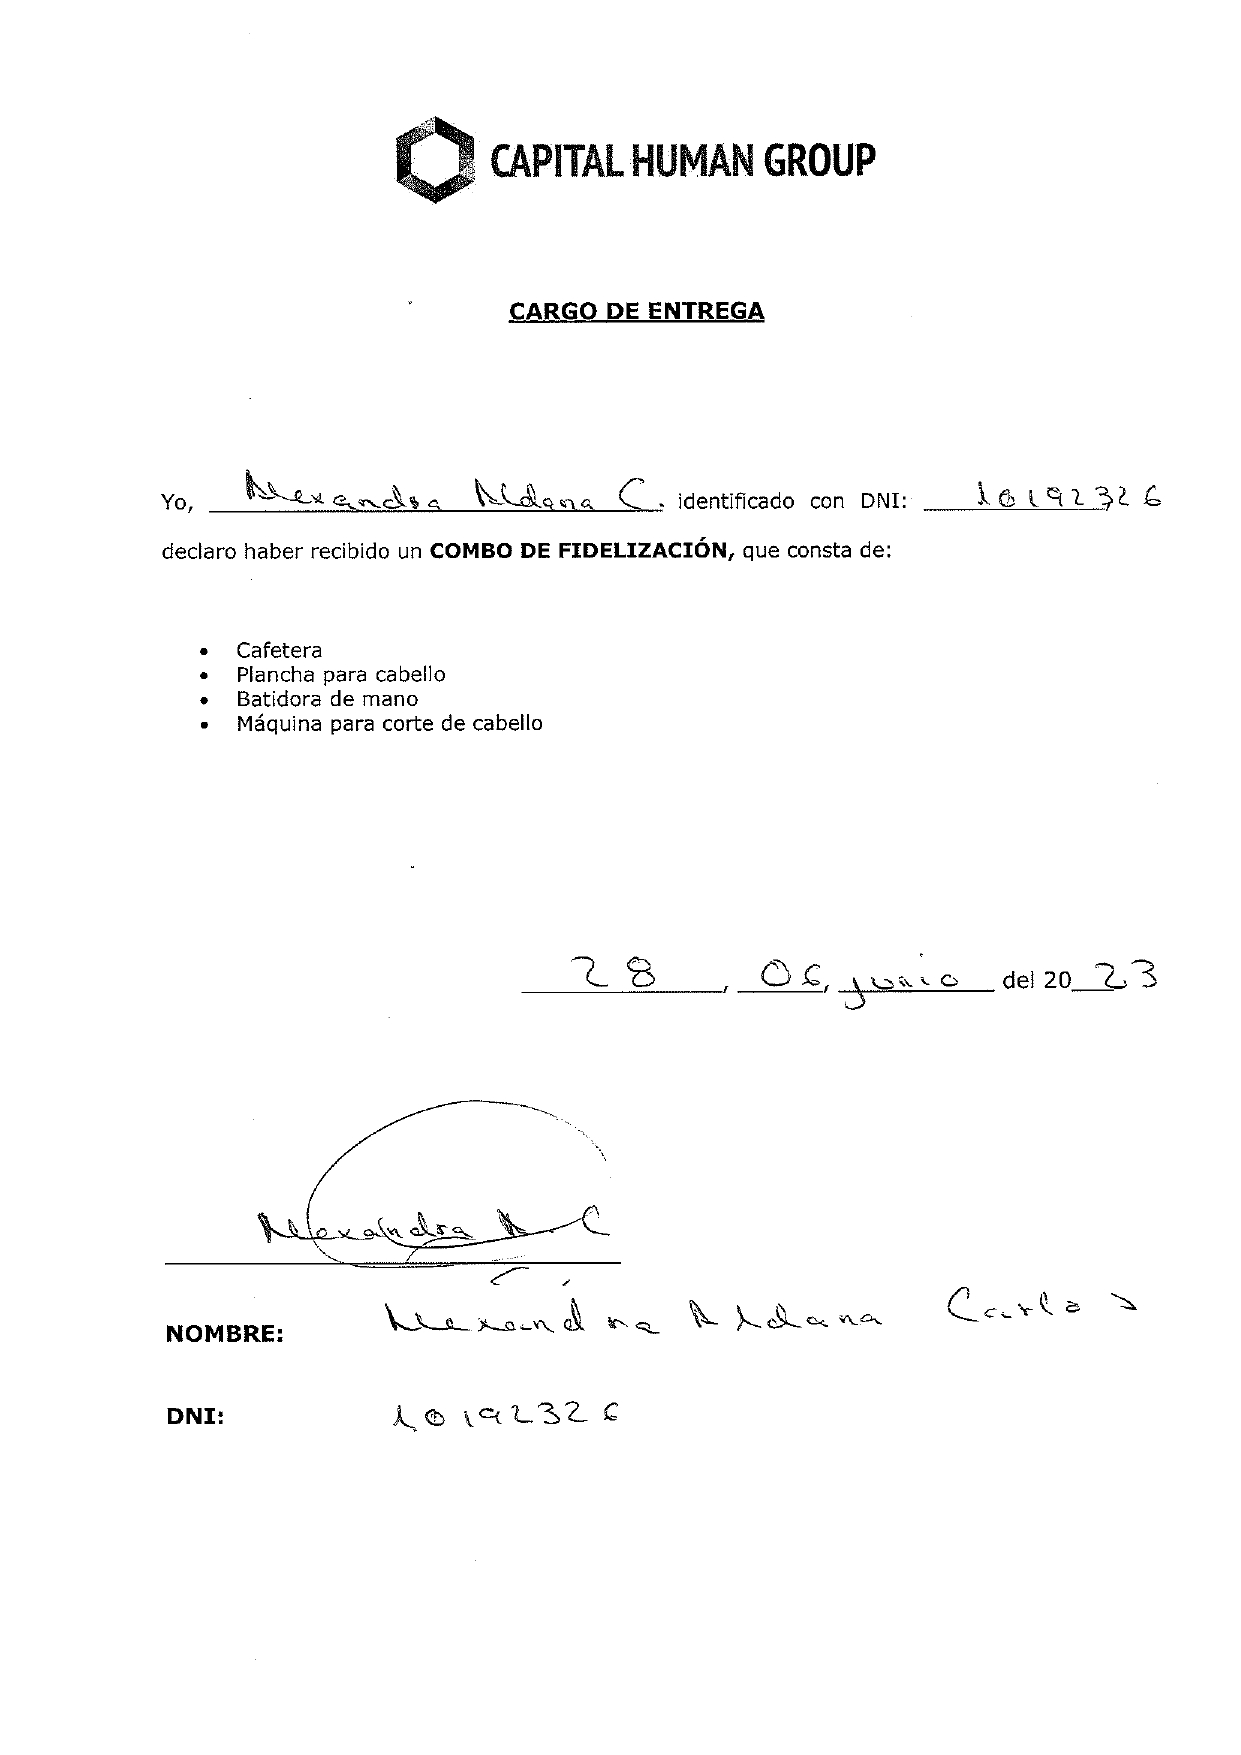 CAPITAL HUMAN GROUP
CARGO DE ENTREGA
Yo, Alexandra Aldana C. identificado con DNI: 10192326
declaro haber recibido un COMBO DE FIDELIZACIÓN, que consta de:
• Cafetera
• Plancha para cabello
• Batidora de mano
• Máquina para corte de cabello
28, 06, junio del 2023
Alexandra A C
NOMBRE: Alexandra Aldana Carlos
DNI: 10192326